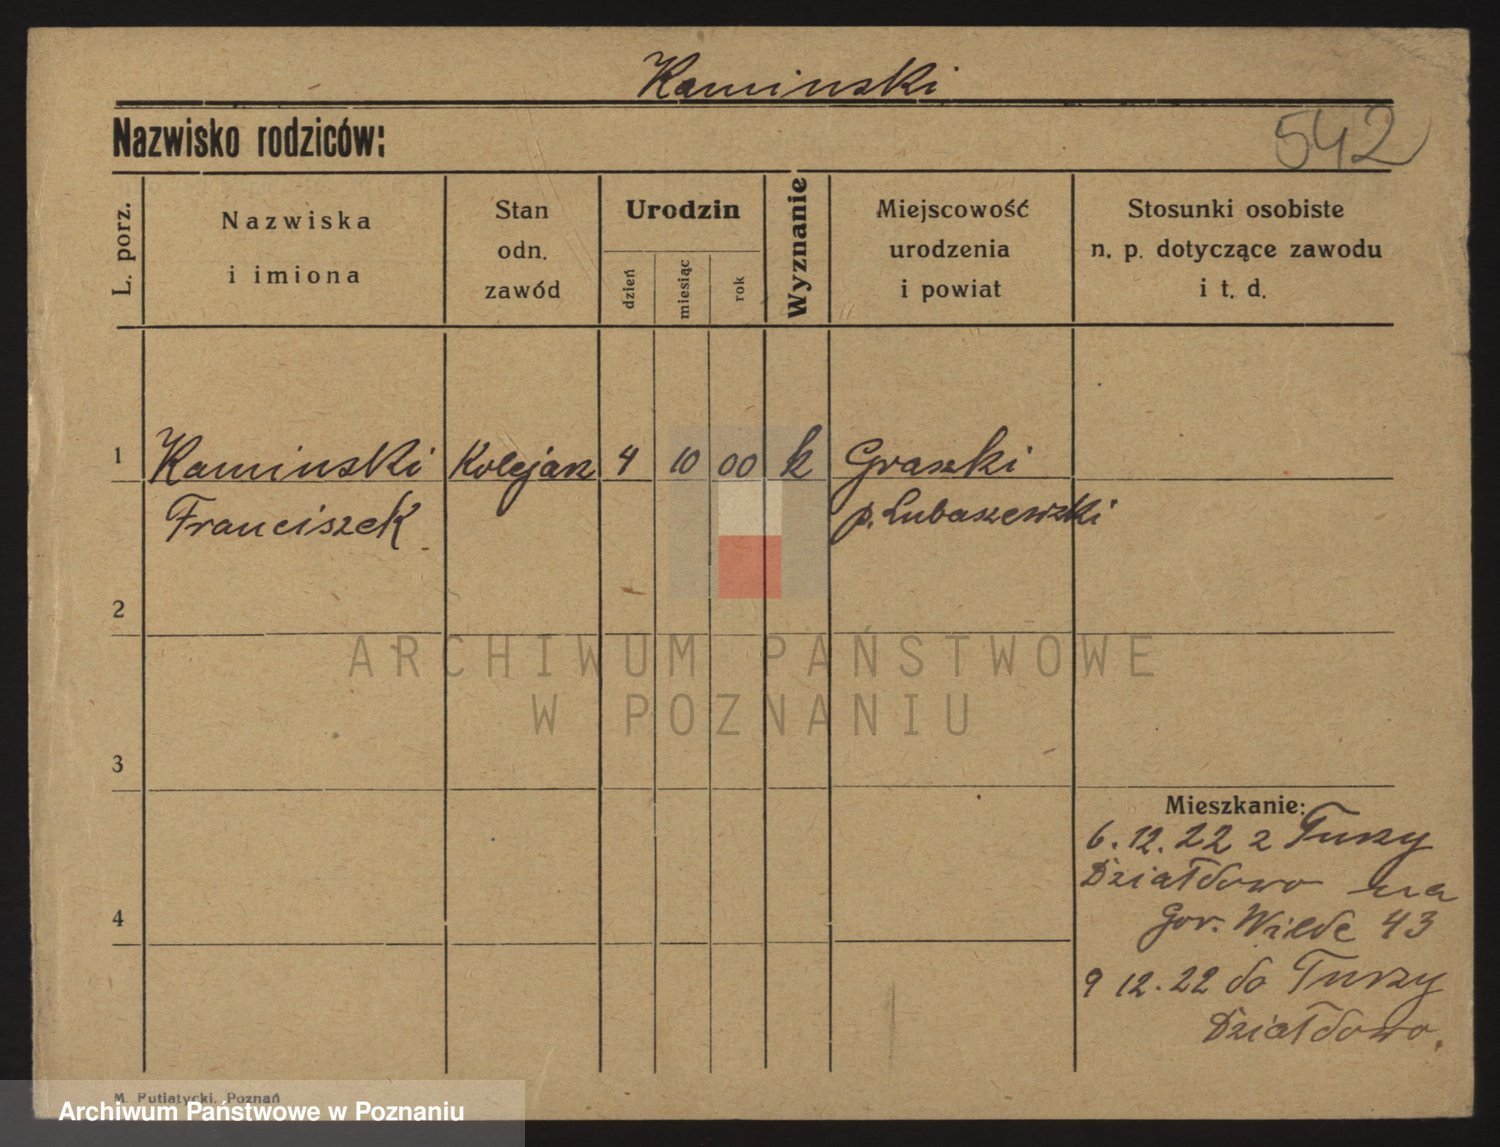 Kaminski
Nazwisko rodziców:
542
L. porz.
Nazwiska
i imiona
Stan
odn.
zawód
Urodzin
dzień
miesiąc
rok
Wyznanie
Miejscowość
urodzenia
i powiat
Stosunki osobiste
n. p. dotyczące zawodu
i t. d.
1 Kaminski Kolejarz 4 10 00 k Graszki
Franciszek p. Lubaszewski
2
3
4
Mieszkanie:
6.12.22 z Turzy
Działdowo na
Gór. Wilde 43
9 12.22 do Turzy
Działdowo.
ARCHIWUM PAŃSTWOWE
W POZNANIU
M. Putiatycki, Poznań
Archiwum Państwowe w Poznaniu